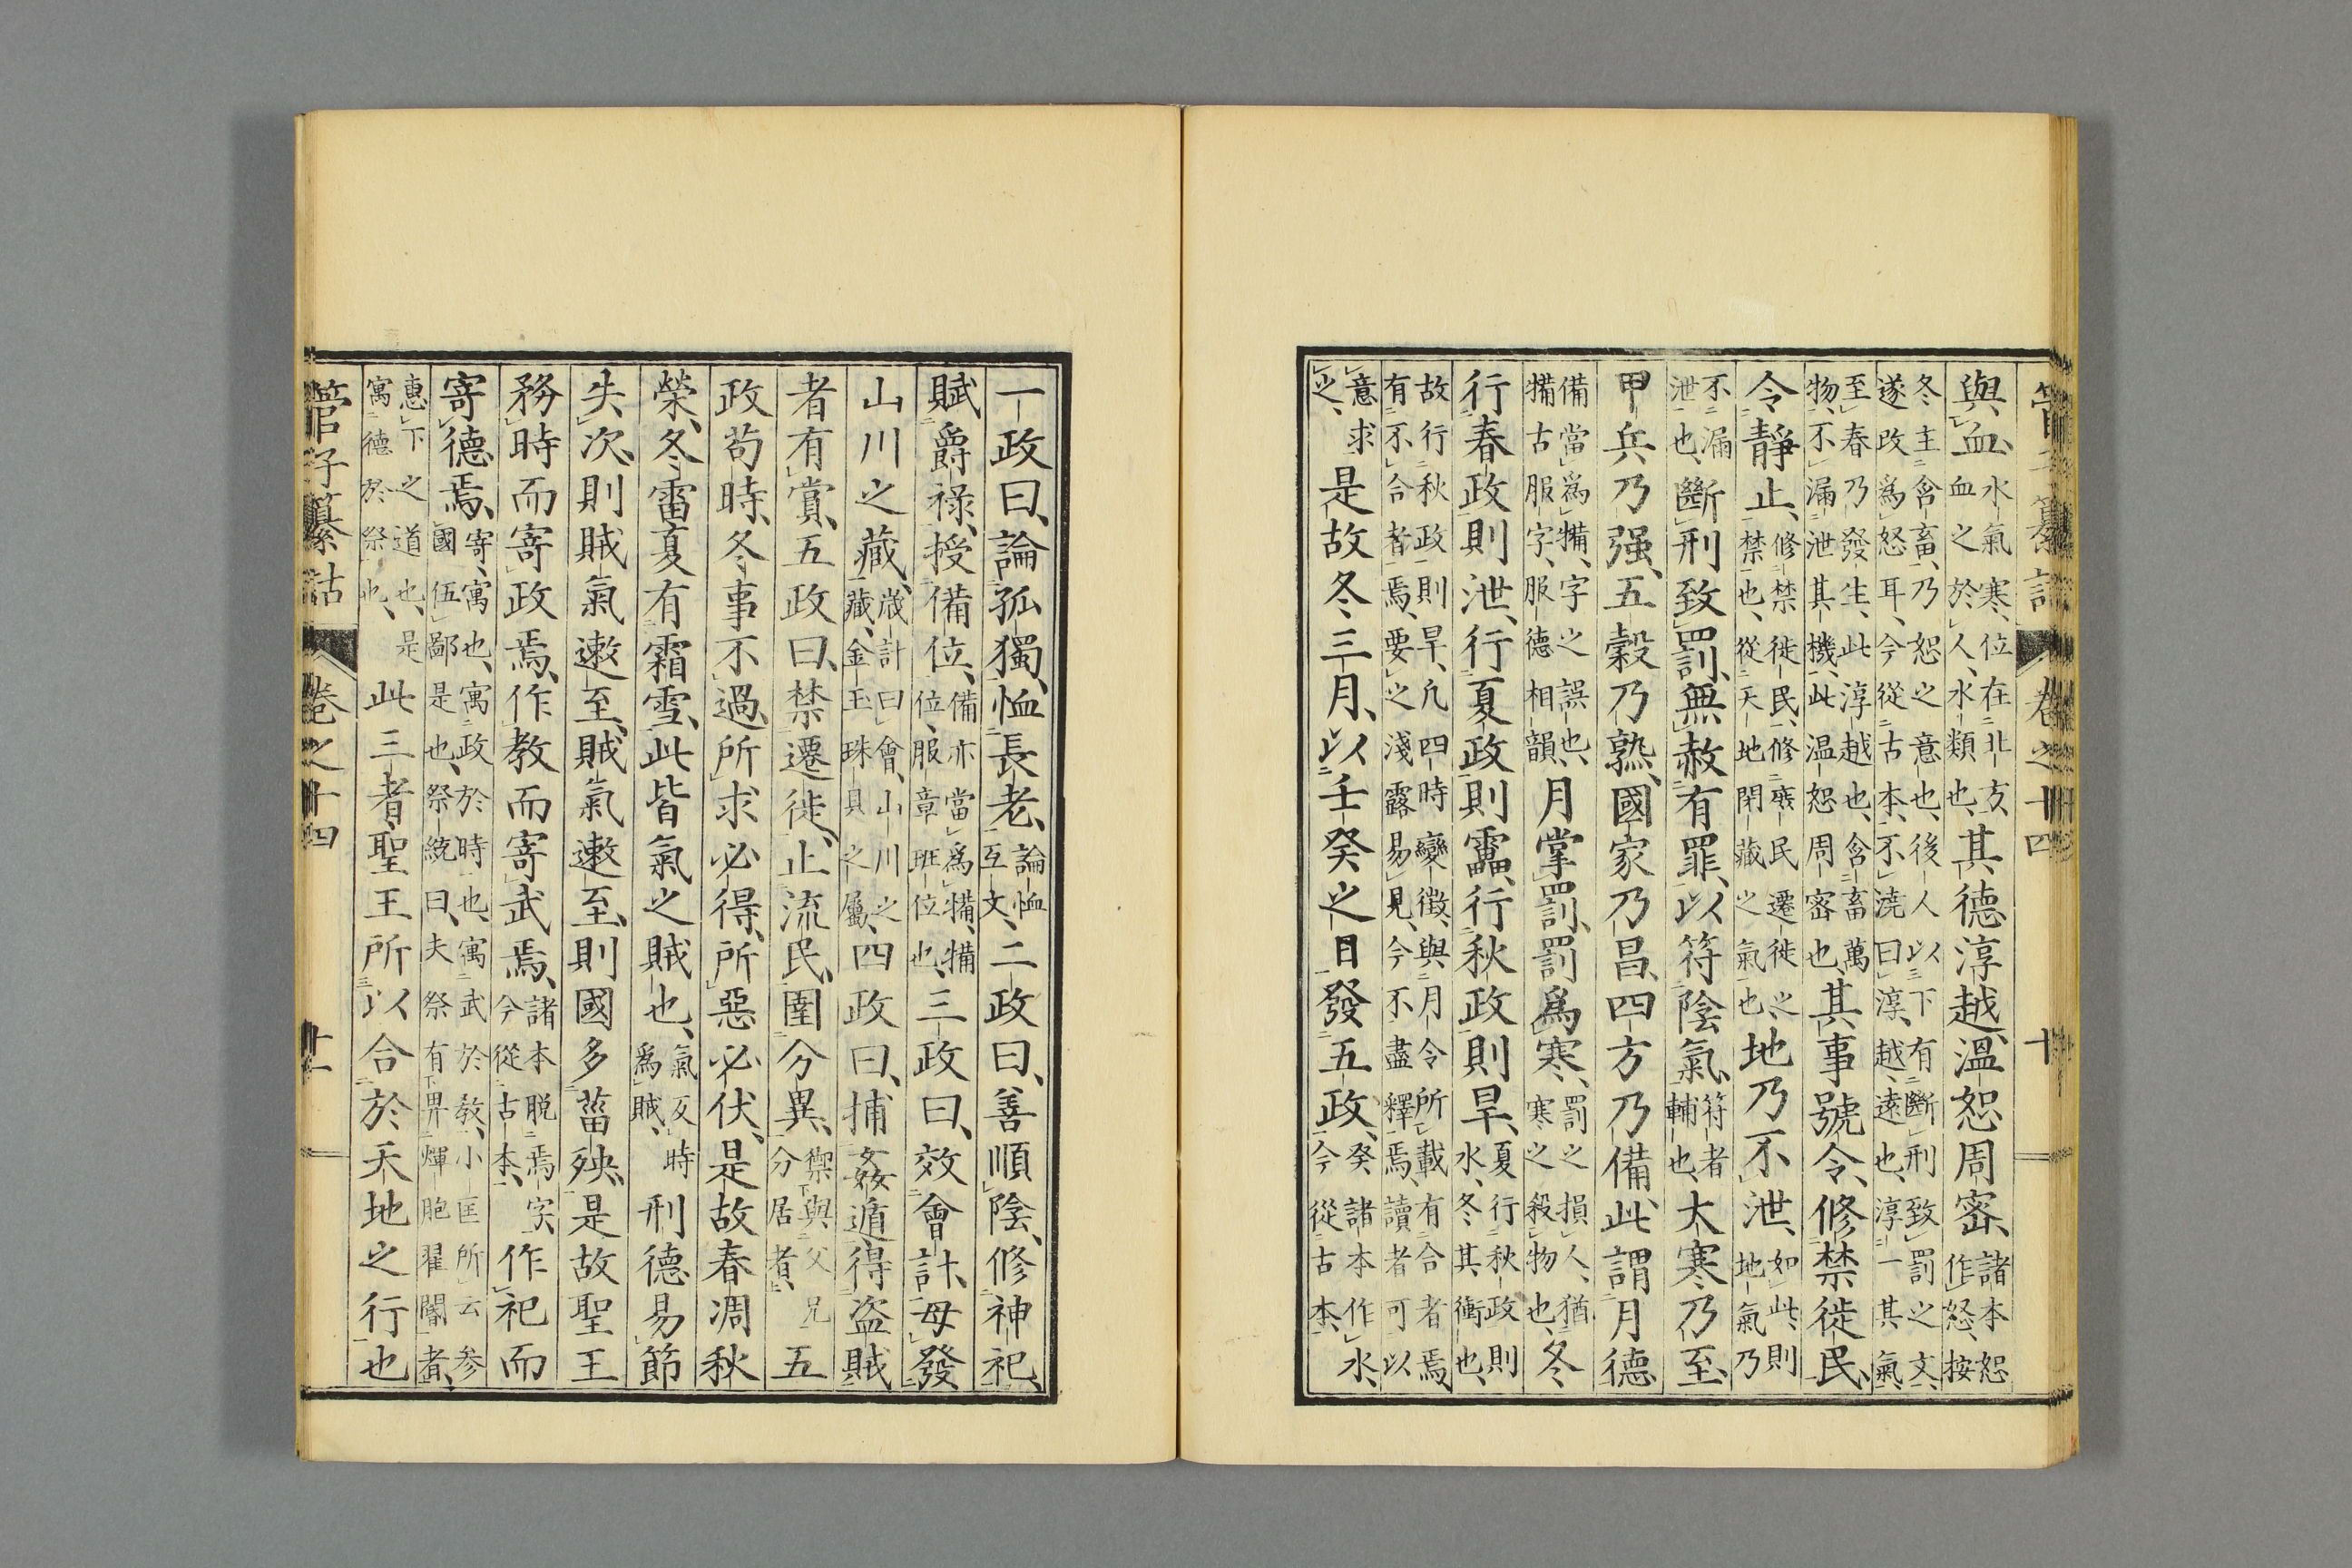 管子纂詁 卷之十四 十
與血、水氣寒、位在北方、血之於人、水類也、其德淳越、溫恕周密、諸本恕作怒、按
冬主含畜、乃恕之意也、後人以下有斷刑致罰之文、遂改爲怒耳、今從古本、不澆曰淳、越、遠也、淳一其氣、
至春乃發生、此淳越也、含畜萬物、不漏泄其機、此溫恕周密也、其事號令、修禁徙民、
令靜止、修禁徙民、修廢民遷徙之禁也、從天地閉藏之氣也、地乃不泄、如此、則地氣乃
不漏泄也、斷刑致罰、無赦有罪、以符陰氣、符者輔也、大寒乃至、
甲兵乃强、五穀乃熟、國家乃昌、四方乃備、此謂月德、
備當爲犕、字之誤也、犕古服字、服德相韻、月掌罰、罰爲寒、罰之損人、猶寒之殺物也、冬
行春政則泄、行夏政則靁、行秋政則旱、夏行秋政則水、冬其衝也、
故行秋政則旱、凡四時變徵、與月令所載有合者焉、有不合者焉、要之淺露易見、今不盡釋焉、讀者可以
意求之、是故冬三月、以壬癸之日發五政、癸諸本作水、今從古本、
一政曰、論孤獨、恤長老、論恤互文、二政曰、善順陰、修神祀、
賦爵祿、授備位、備亦當爲犕、犕位、服章班位也、三政曰、效會計、毋發
山川之藏、歲計曰會、山川之藏、金玉珠具之屬、四政曰、捕姦遁、得盜賊
者有賞、五政曰、禁遷徙、止流民、圉分異、禦與父兄分居者、五
政苟時、冬事不過、所求必得、所惡必伏、是故春凋秋
榮、冬雷夏有霜雪、此皆氣之賊也、氣反時爲賊、刑德易節
失次、則賊氣遬至、賊氣遬至、則國多菑殃、是故聖王
務時而寄政焉、作教而寄武焉、諸本脱焉字、今從古本、作祀而
寄德焉、寄、寓也、寓政於時也、寓武於敎、小匡所云參國伍鄙是也、祭統曰、夫祭有畀煇胞翟閽者、
惠下之道也、是寓德於祭也、此三者聖王所以合於天地之行也
管子纂詁 卷之十四 十一